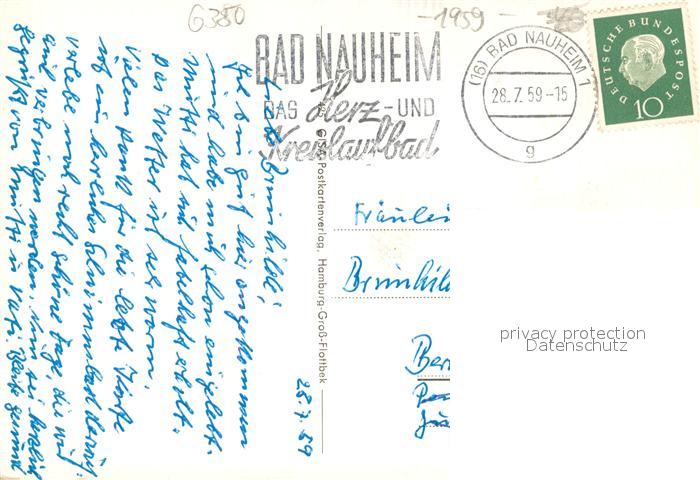 G380
-1959-
BAD NAUHEIM
DAS Herz-UND
Kreislaufbad
(16) BAD NAUHEIM 1
28.7.59-15
g
DEUTSCHE BUNDESPOST
10
GISA Postkartenverlag, Hamburg-Groß-Flottbek
28.7.59
Liebe Brunhilde,
Ich bin gut hier angekommen
und habe mich schon eingelebt.
Mutti hat sich fabelhaft erholt.
Das Wetter ist sehr warm.
Vielen Dank für die letzte Karte
ein herrliches Schwimmbad
verlebe noch recht schöne Tage, die wir
verbringen werden. Nun sei herzlich
gegrüßt von Mutti u. Vati
Fräulei
Brunhil
Ber
privacy protection
Datenschutz